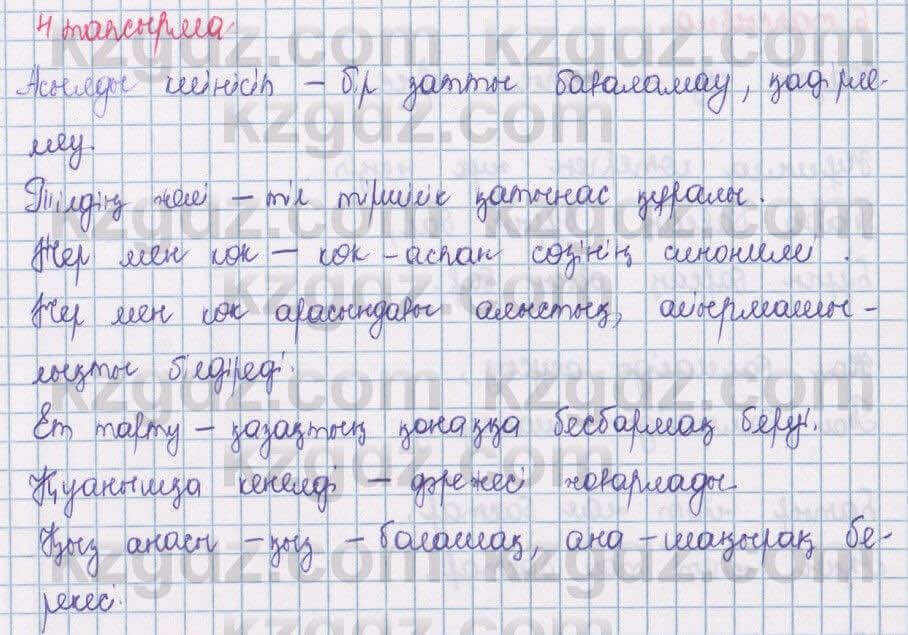 4 тапсырма
Асылды шінісіп – бір затты бағаламау, қадірле-
меу.
Тілдің желі – тіл тіршілік қатынас құралы.
Жер мен көк – көк – аспан сөзінің синонимі.
Жер мен көк арасындағы алыстық, айырмашы-
лықты білдіреді.
Ет тарту – қазақтың қонаққа бесбармақ беруі.
Қуанышқа кенелді – дәрежесі жоғарлады
Қыз анасы – қыз – болашақ, ана – шаңырақ бе-
рекесі.
kzgdz.com